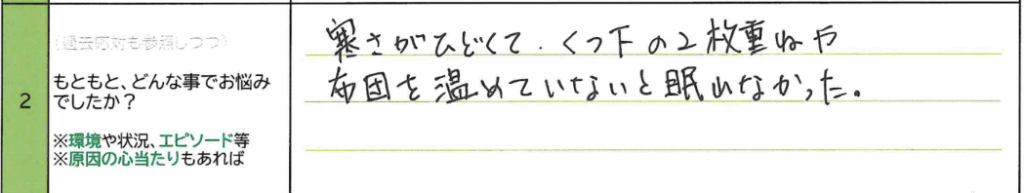 2
(過去応対も参照しつつ)
もともと、どんな事でお悩み
でしたか?
※環境や状況、エピソード等
※原因の心当たりもあれば
寒さがひどくて、くつ下の2枚重ねや
布団を温めていないと眠れなかった。